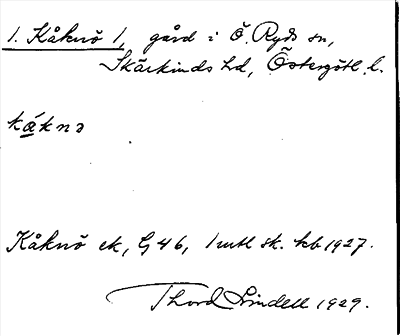 1. Kåknö 1, gård i Ö. Ryds sn,
Skärkinds hd, Östergötl. l.
kǻknə
Kåknö ek, G 46, 1 mtl sk. kb 1927.
Thord Lindell 1929.